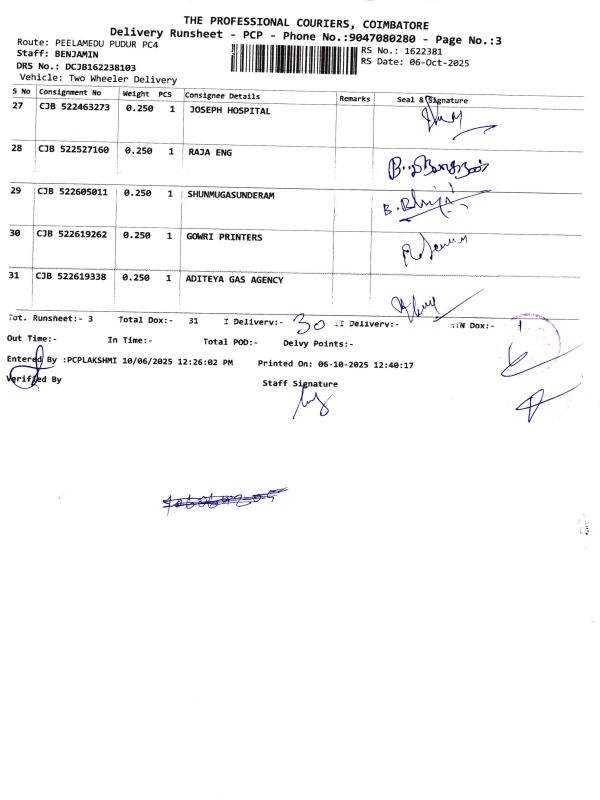 THE PROFESSIONAL COURIERS, COIMBATORE
Delivery Runsheet - PCP - Phone No.:9047080280 - Page No.:3
Route: PEELAMEDU PUDUR PC4
Staff: BENJAMIN
RS No.: 1622381
DRS No.: DCJB162238103
RS Date: 06-Oct-2025
Vehicle: Two Wheeler Delivery
S No Consignment No Weight PCS Consignee Details Remarks Seal & Signature
27 CJB 522463273 0.250 1 JOSEPH HOSPITAL
28 CJB 522527160 0.250 1 RAJA ENG
29 CJB 522605011 0.250 1 SHUNMUGASUNDERAM
30 CJB 522619262 0.250 1 GOWRI PRINTERS
31 CJB 522619338 0.250 1 ADITEYA GAS AGENCY
Tot. Runsheet:- 3 Total Dox:- 31 I Delivery:- 30 II Delivery:- N Dox:- 1
Out Time:- In Time:- Total POD:- Delvy Points:-
Entered By :PCPLAKSHMI 10/06/2025 12:26:02 PM Printed On: 06-10-2025 12:40:17
Verified By Staff Signature